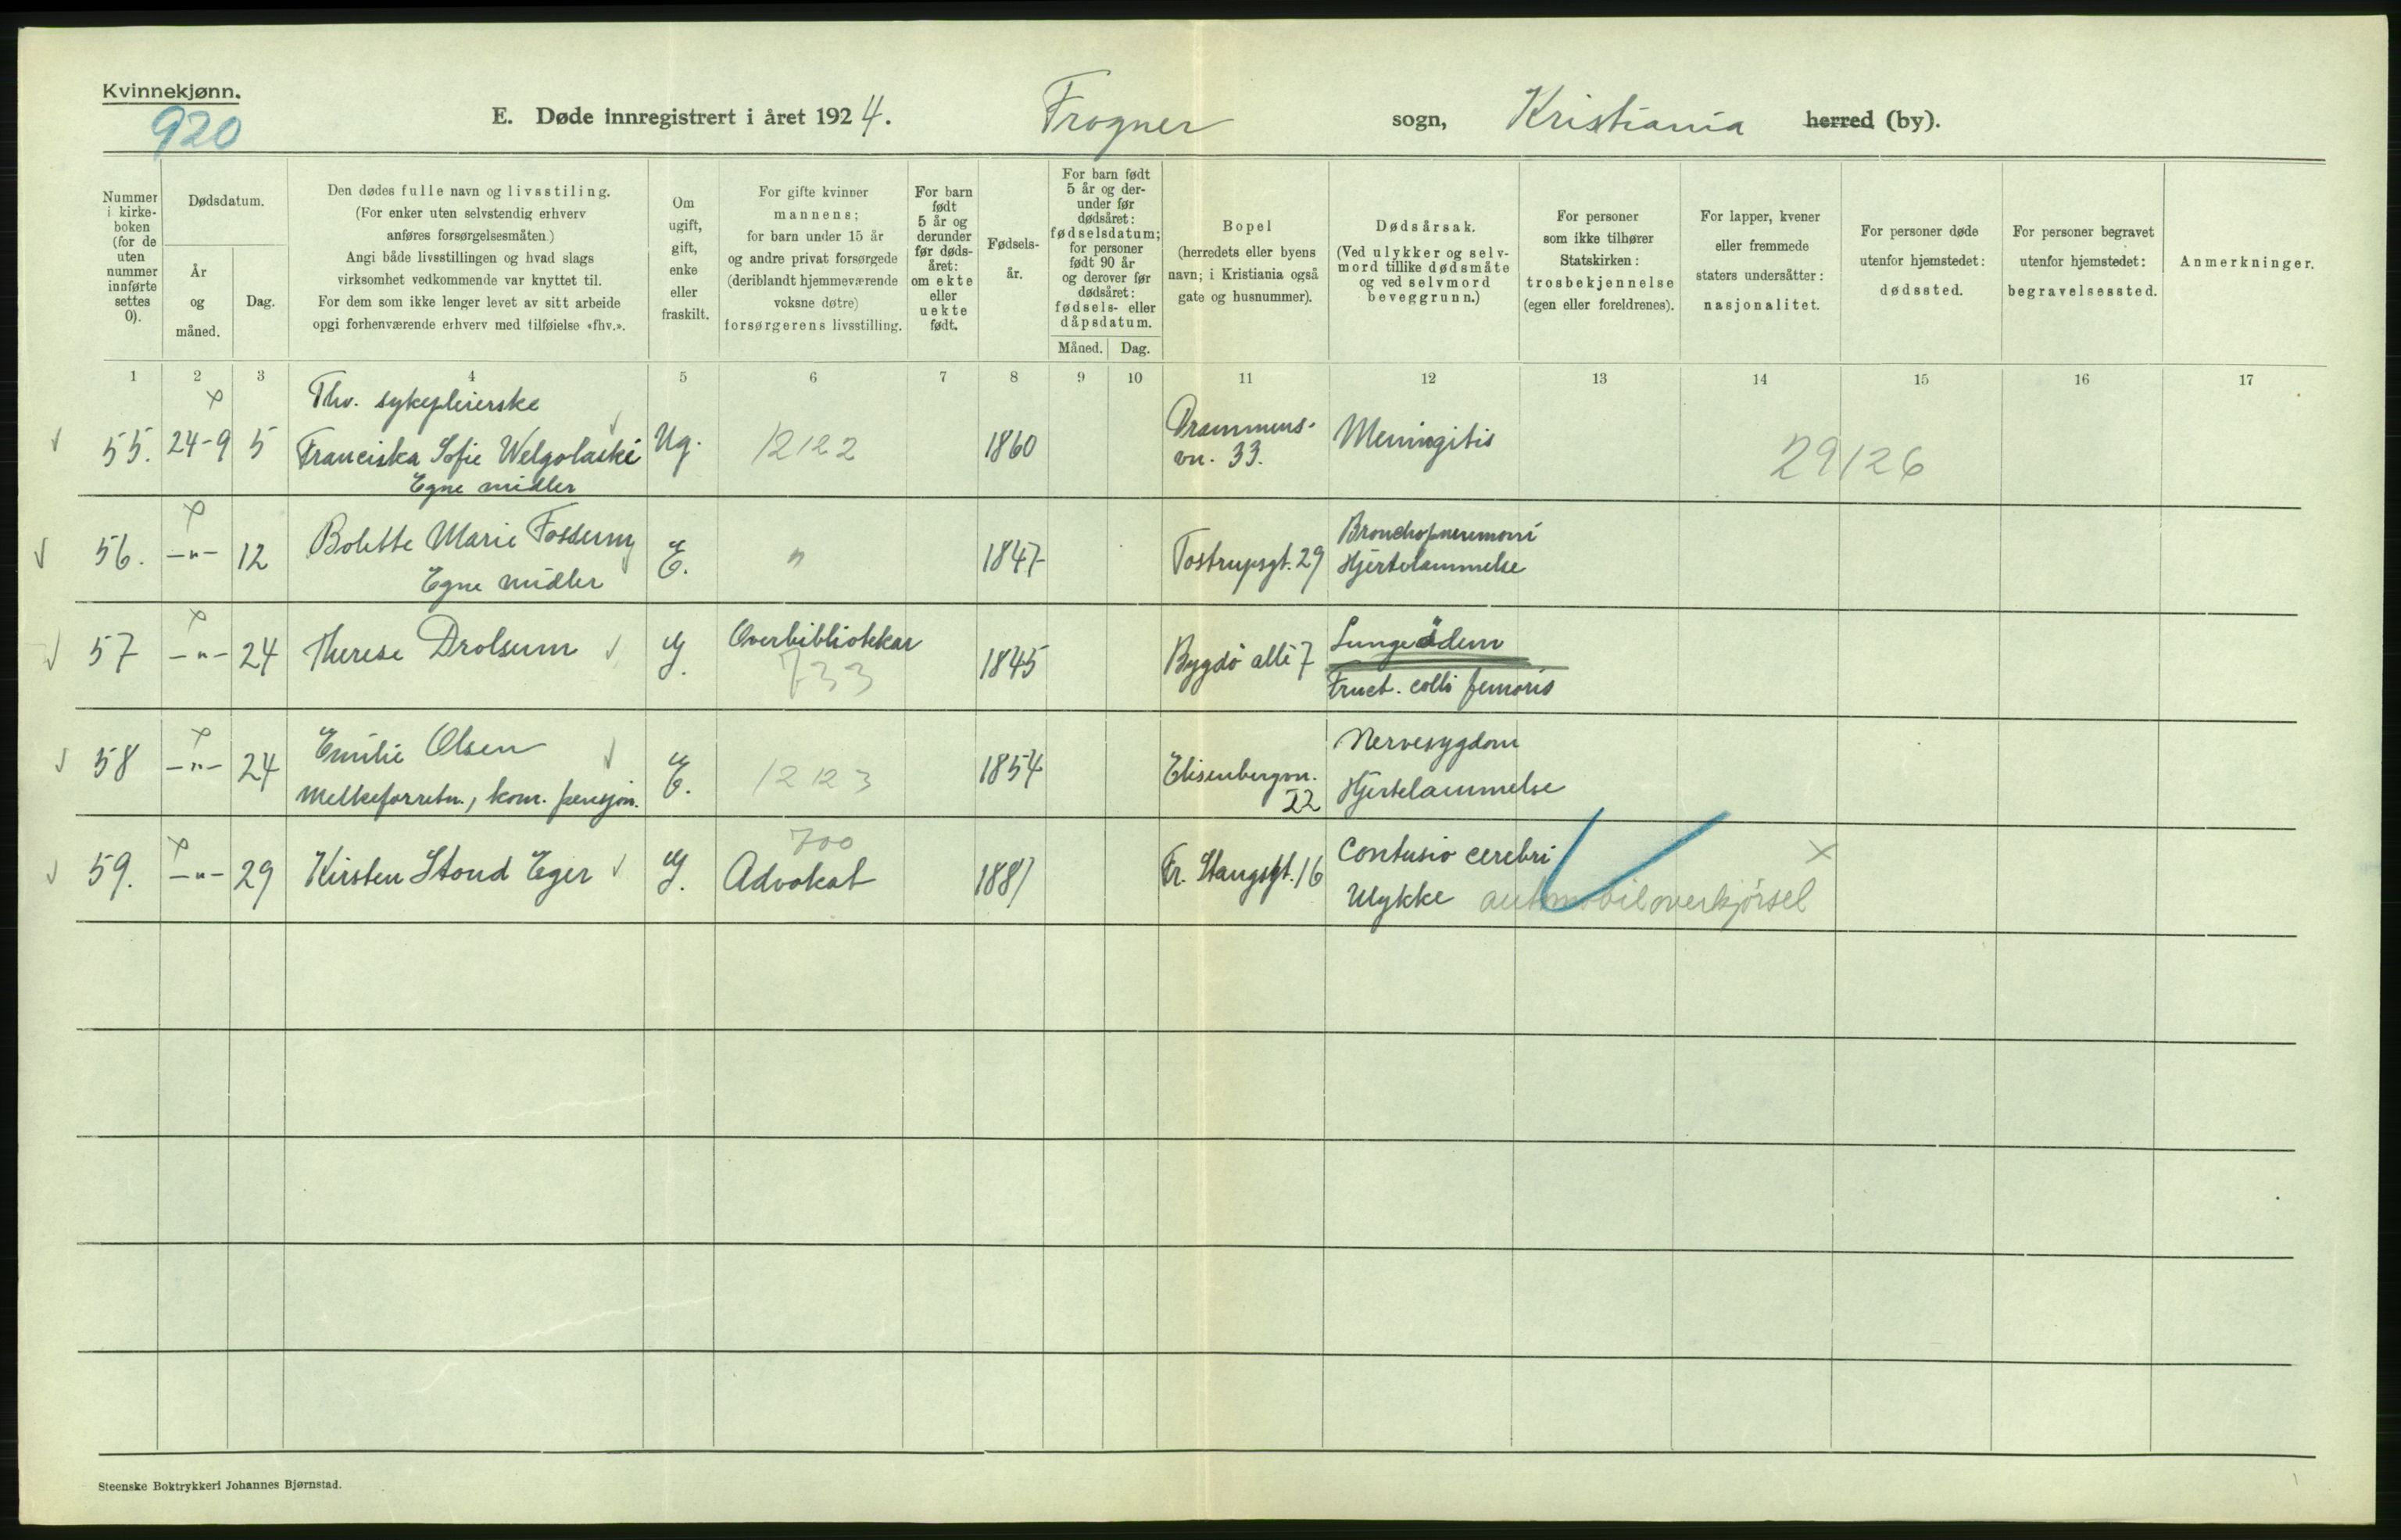 Kvinnekjønn.
920
E. Døde innregistrert i året 1924. Frogner sogn, Kristiania herred (by).
Nummer i kirke- boken (for de uten nummer innførte settes 0).
Dødsdatum.
År og måned.
Dag.
Den dødes fulle navn og livsstiling.
(For enker uten selvstendig erhverv
anføres forsørgelsesmåten.)
Angi både livsstillingen og hvad slags
virksomhet vedkommende var knyttet til.
For dem som ikke lenger levet av sitt arbeide
opgi forhenværende erhverv med tilføielse «fhv.».
Om
ugift,
gift,
enke
eller
fraskilt.
For gifte kvinner
mannens;
for barn under 15 år
og andre privat forsørgede
(deriblandt hjemmeværende
voksne døtre)
forsørgerens livsstilling.
For barn
født
5 år og
derunder
før døds-
året:
om ekte
eller
uekte
født.
Fødsels-
år.
For barn født
5 år og der-
under før
dødsåret:
fødselsdatum;
for personer
født 90 år
og derover før
dødsåret:
fødsels- eller
dåpsdatum.
Måned. Dag.
Bopel
(herredets eller byens
navn; i Kristiania også
gate og husnummer).
Dødsårsak.
(Ved ulykker og selv-
mord tillike dødsmåte
og ved selvmord
beveggrunn.)
For personer
som ikke tilhører
Statskirken:
trosbekjennelse
(egen eller foreldrenes).
For lapper, kvener
eller fremmede
staters undersåtter:
nasjonalitet.
For personer døde
utenfor hjemstedet:
dødssted.
For personer begravet
utenfor hjemstedet:
begravelsessted.
Anmerkninger.
1 2 3 4 5 6 7 8 9 10 11 12 13 14 15 16 17
Fhv. sykepleierske
55. 24-9 5 Franciska Sofie Welgolaski Ug. 12122 1860 Drammens- vn. 33. Meningitis 29126
Egne midler
56. -"- 12 Bolette Marie Fossum E. " 1847 Tostrupsgt. 29 Bronchopneumoni
Egne midler Hjertelammelse
57 -"- 24 Therese Drolsum G. Overbibliotekar 1845 Bygdö allé 7 Lungeödem
733 Fract. colli femoris
58 -"- 24 Emilie Olsen E. 12123 1854 Elisenbergvn. 22 Nervesygdom
Melkeforretn., kom. pensjon. Hjertelammelse
700
59. -"- 29 Kirsten Stoud Eger G. Advokat 1881 Fr. Stangsgt. 16 Contusio cerebri
Ulykke automobiloverkjörsel
Steenske Boktrykkeri Johannes Bjørnstad.